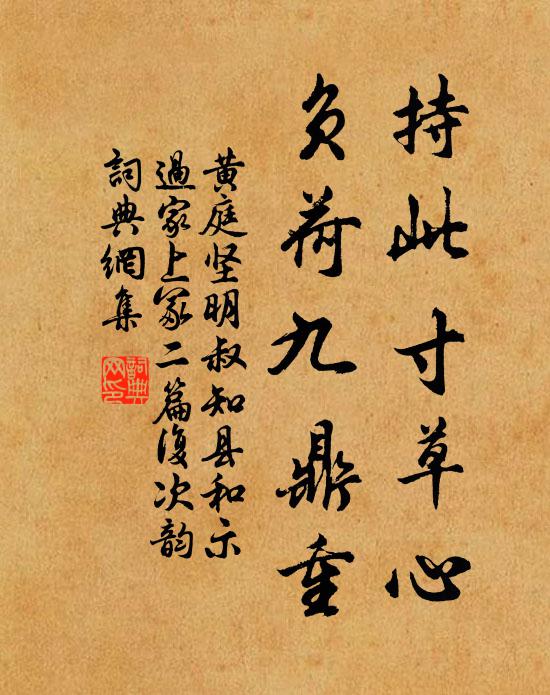 持此寸草心
负荷九鼎重
黄庭坚明叔知县和示
過家上冢二篇復次韵
詞典網集
詞典
网印